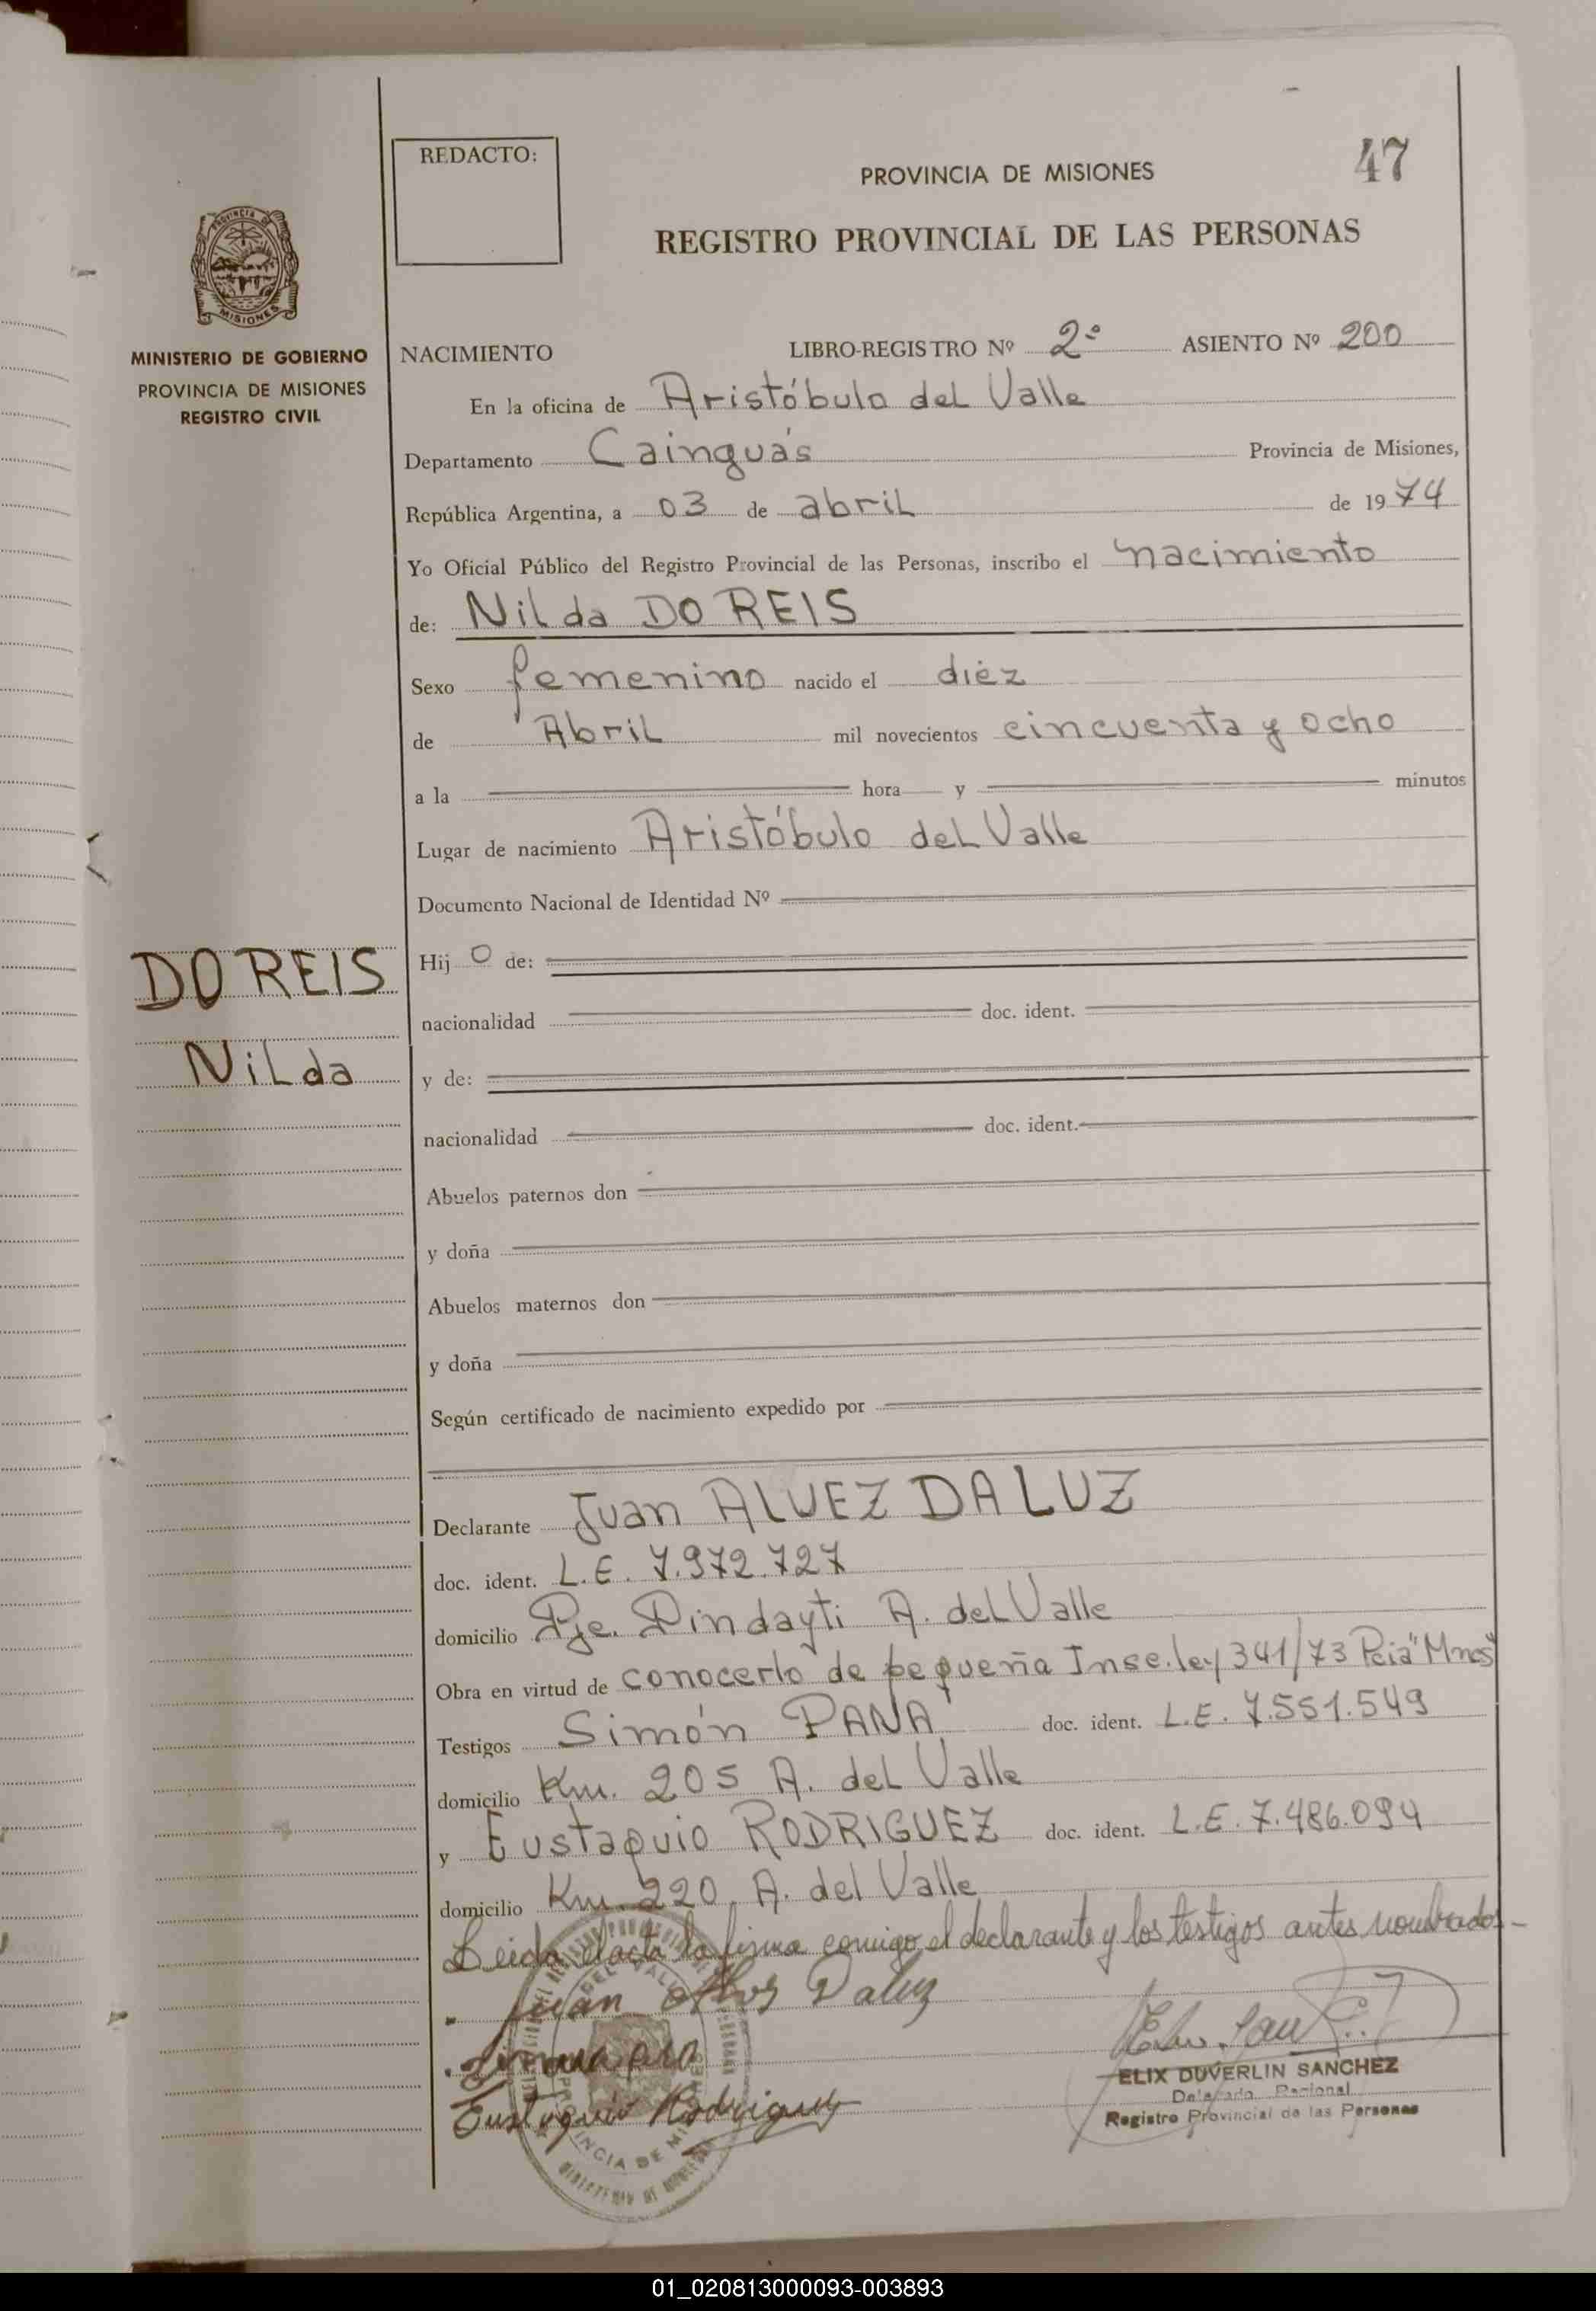 47
REDACTO:
PROVINCIA DE MISIONES
REGISTRO PROVINCIAL DE LAS PERSONAS
PROVINCIA DE
MISIONES
MINISTERIO DE GOBIERNO
PROVINCIA DE MISIONES
REGISTRO CIVIL
NACIMIENTO LIBRO-REGISTRO Nº 2º ASIENTO Nº 200
En la oficina de Aristóbulo del Valle
Departamento Cainguás Provincia de Misiones,
República Argentina, a 03 de abril de 1974
Yo Oficial Público del Registro Provincial de las Personas, inscribo el nacimiento
de: Nilda DO REIS
Sexo femenino nacido el diéz
de Abril mil novecientos cincuenta y ocho
a la hora y minutos
Lugar de nacimiento Aristóbulo del Valle
Documento Nacional de Identidad Nº
DO REIS
Nilda
Hij o de:
nacionalidad doc. ident.
y de:
nacionalidad doc. ident.
Abuelos paternos don
y doña
Abuelos maternos don
y doña
Según certificado de nacimiento expedido por
Declarante Juan ALVEZ DA LUZ
doc. ident. L.E. 7.972.727
domicilio Pje. Pindayti A. del Valle
Obra en virtud de conocerlo de pequeña Insc. ley 341/73 Pcia "Mnes"
Testigos Simón PANA doc. ident. L.E. 7.551.549
domicilio Km. 205 A. del Valle
y Eustaquio RODRIGUEZ doc. ident. L.E. 7.486.094
domicilio Km. 220 A. del Valle
Leida el acta la firma conmigo el declarante y los testigos antes nombrados-
Juan Daluz
Eustaquio Rodriguez
ELIX DUVERLIN SANCHEZ
Delegado Regional
Registro Provincial de las Personas
01_020813000093-003893